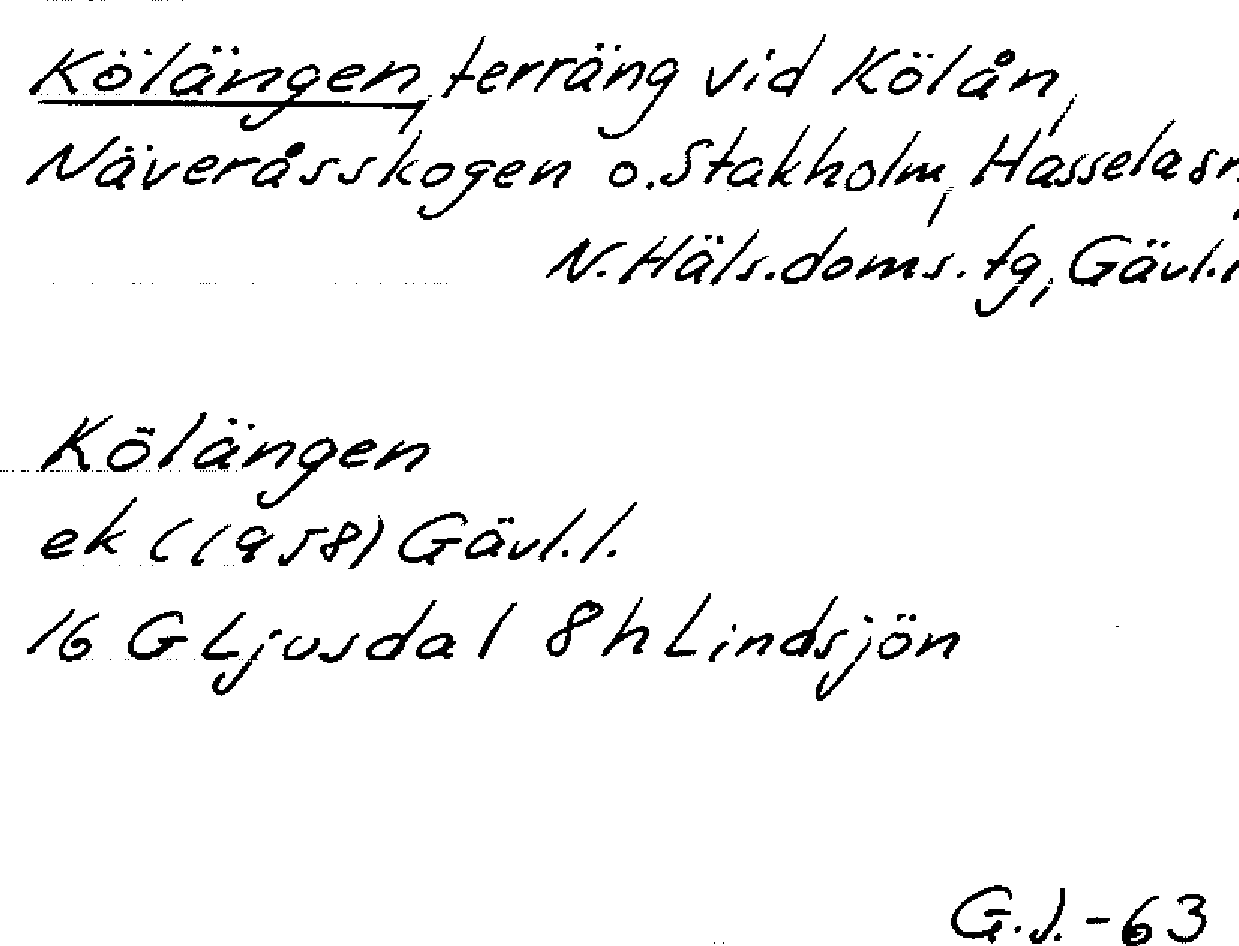 Kölängen, terräng vid Kölån,
Näveråsskogen o. Stakholm, Hassela sn.
N. Häls. doms. tg, Gävl. l
Kölängen
ek (1958) Gävl. l.
16 G Ljusdal 8 h Lindsjön
G.J. -63